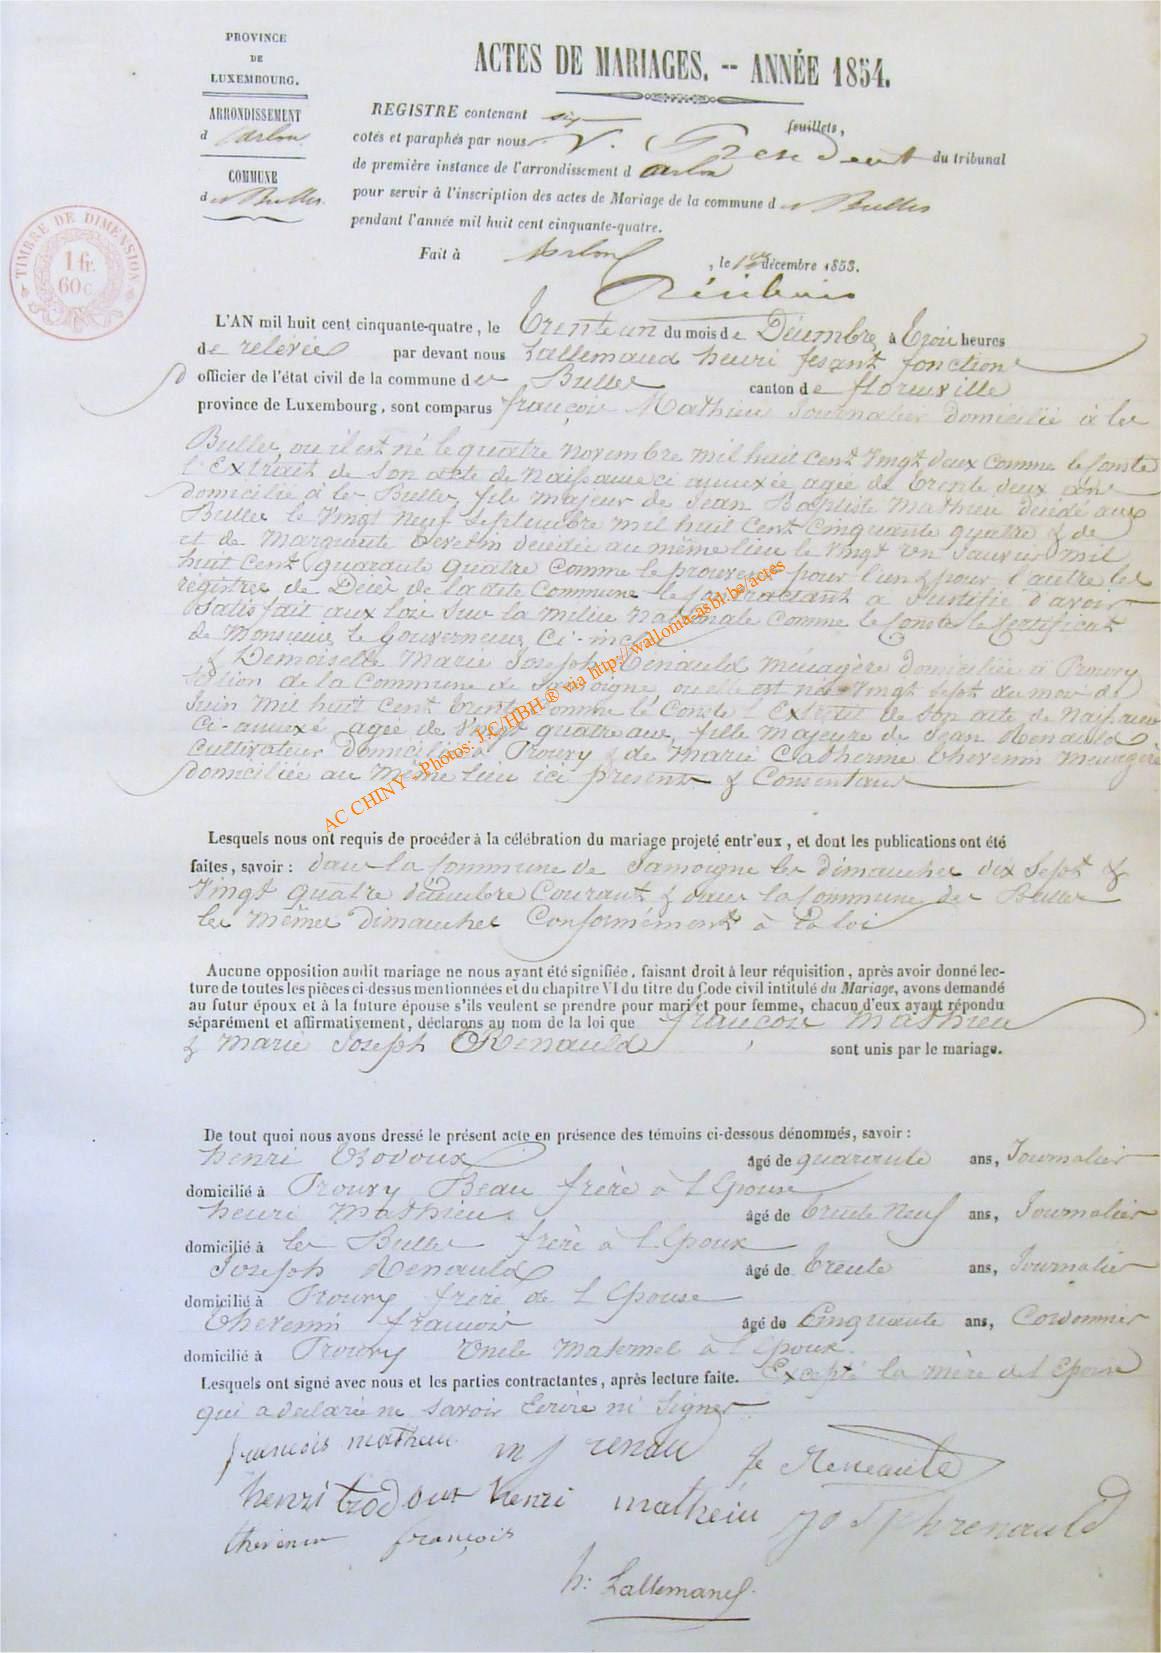 PROVINCE
DE
LUXEMBOURG.
ARRONDISSEMENT
d'Arlon
COMMUNE
des Bulles
TIMBRE DE DIMENSION
1 fr.
60 c.
ACTES DE MARIAGES. -- ANNÉE 1854.
REGISTRE contenant six feuillets,
cotés et paraphés par nous V. Président du tribunal
de première instance de l'arrondissement d'Arlon
pour servir à l'inscription des actes de Mariage de la commune des Bulles
pendant l'année mil huit cent cinquante-quatre.
Fait à Arlon, le 1er décembre 1853.
L'AN mil huit cent cinquante-quatre, le Trente un du mois de Décembre à trois heures
de relevée par devant nous Lallemand henri fesant fonction
d officier de l'état civil de la commune des Bulles canton de florenville
province de Luxembourg, sont comparus françois Mathieu Journalier domicilié à les
Bulles, ou il est né le quatre novembre mil huit cent vingt deux comme le conste
l'Extrait de son acte de Naissance ci annexée agée de trente deux ans
domicilié à les Bulles, fils majeur de Jean Baptiste Mathieu décédé aux
Bulles le vingt neuf septembre mil huit cent cinquante quatre & de
et de Marguerite décédée au même lieu le vingt un Janvier mil
huit cent quarante quatre comme le prouvent pour l'un & pour l'autre les
régistres de Décès de la dite Commune le contractant a Justifié d'avoir
satisfait aux loix sur la milice Nationale comme le Conste le Certificat
de Monsieur le Gouverneur, Ci-inclu
& Demoiselle Marie Joseph Renauld Ménagère domiciliée à Prouvy
section de la Commune de Jamoigne, ou elle est née vingt sept du mois de
Juin mil huit cent trente comme le Conste l'Extrait de son acte de Naissance
Ci-annexé agée de vingt quatre ans, fille majeure de Jean Renauld
Cultivateur domicilié à Prouvy & de Marie Catherine thevenin Menagère
domiciliée au même lieu ici présents & Consentans
AC CHINY - Photos: J.C/HBH ® via http://wallonia-asbl.be/actes
Lesquels nous ont requis de procéder à la célébration du mariage projeté entr'eux, et dont les publications ont été
faites, savoir: dans la Commune de Jamoigne les dimanches dix sept &
vingt quatre décembre Courant & dans la Commune des Bulles
les mêmes dimanches Conformément à la loi
Aucune opposition audit mariage ne nous ayant été signifiée, faisant droit à leur réquisition, après avoir donné lec-
ture de toutes les pièces ci-dessus mentionnées et du chapitre VI du titre du Code civil intitulé du Mariage, avons demandé
au futur époux et à la future épouse s'ils veulent se prendre pour mari et pour femme, chacun d'eux ayant répondu
séparément et affirmativement, déclarons au nom de la loi que françois mathieu
& marie Joseph Renauld sont unis par le mariage.
De tout quoi nous avons dressé le présent acte en présence des témoins ci-dessous dénommés, savoir:
henri trodoux âgé de quarante ans, Journalier
domicilié à Prouvy Beau frère à l'Epouse
henri Mathieu âgé de trente neuf ans, Journalier
domicilié à les Bulles frère à l'Epoux
Joseph Renauld âgé de trente ans, Journalier
domicilié à Prouvy frère de l'Epouse
thevenin francois âgé de Cinquante ans, Cordonnier
domicilié à Prouvy Oncle maternel à l'Epoux.
Lesquels ont signé avec nous et les parties contractantes, après lecture faite. Excepté la mère de l'Epouse
qui a déclarée ne savoir Ecrire ni signer
francois matheiu m j renau
henri trodoux henri matheiu josephrenauld
thevenin françois
h: Lallemand